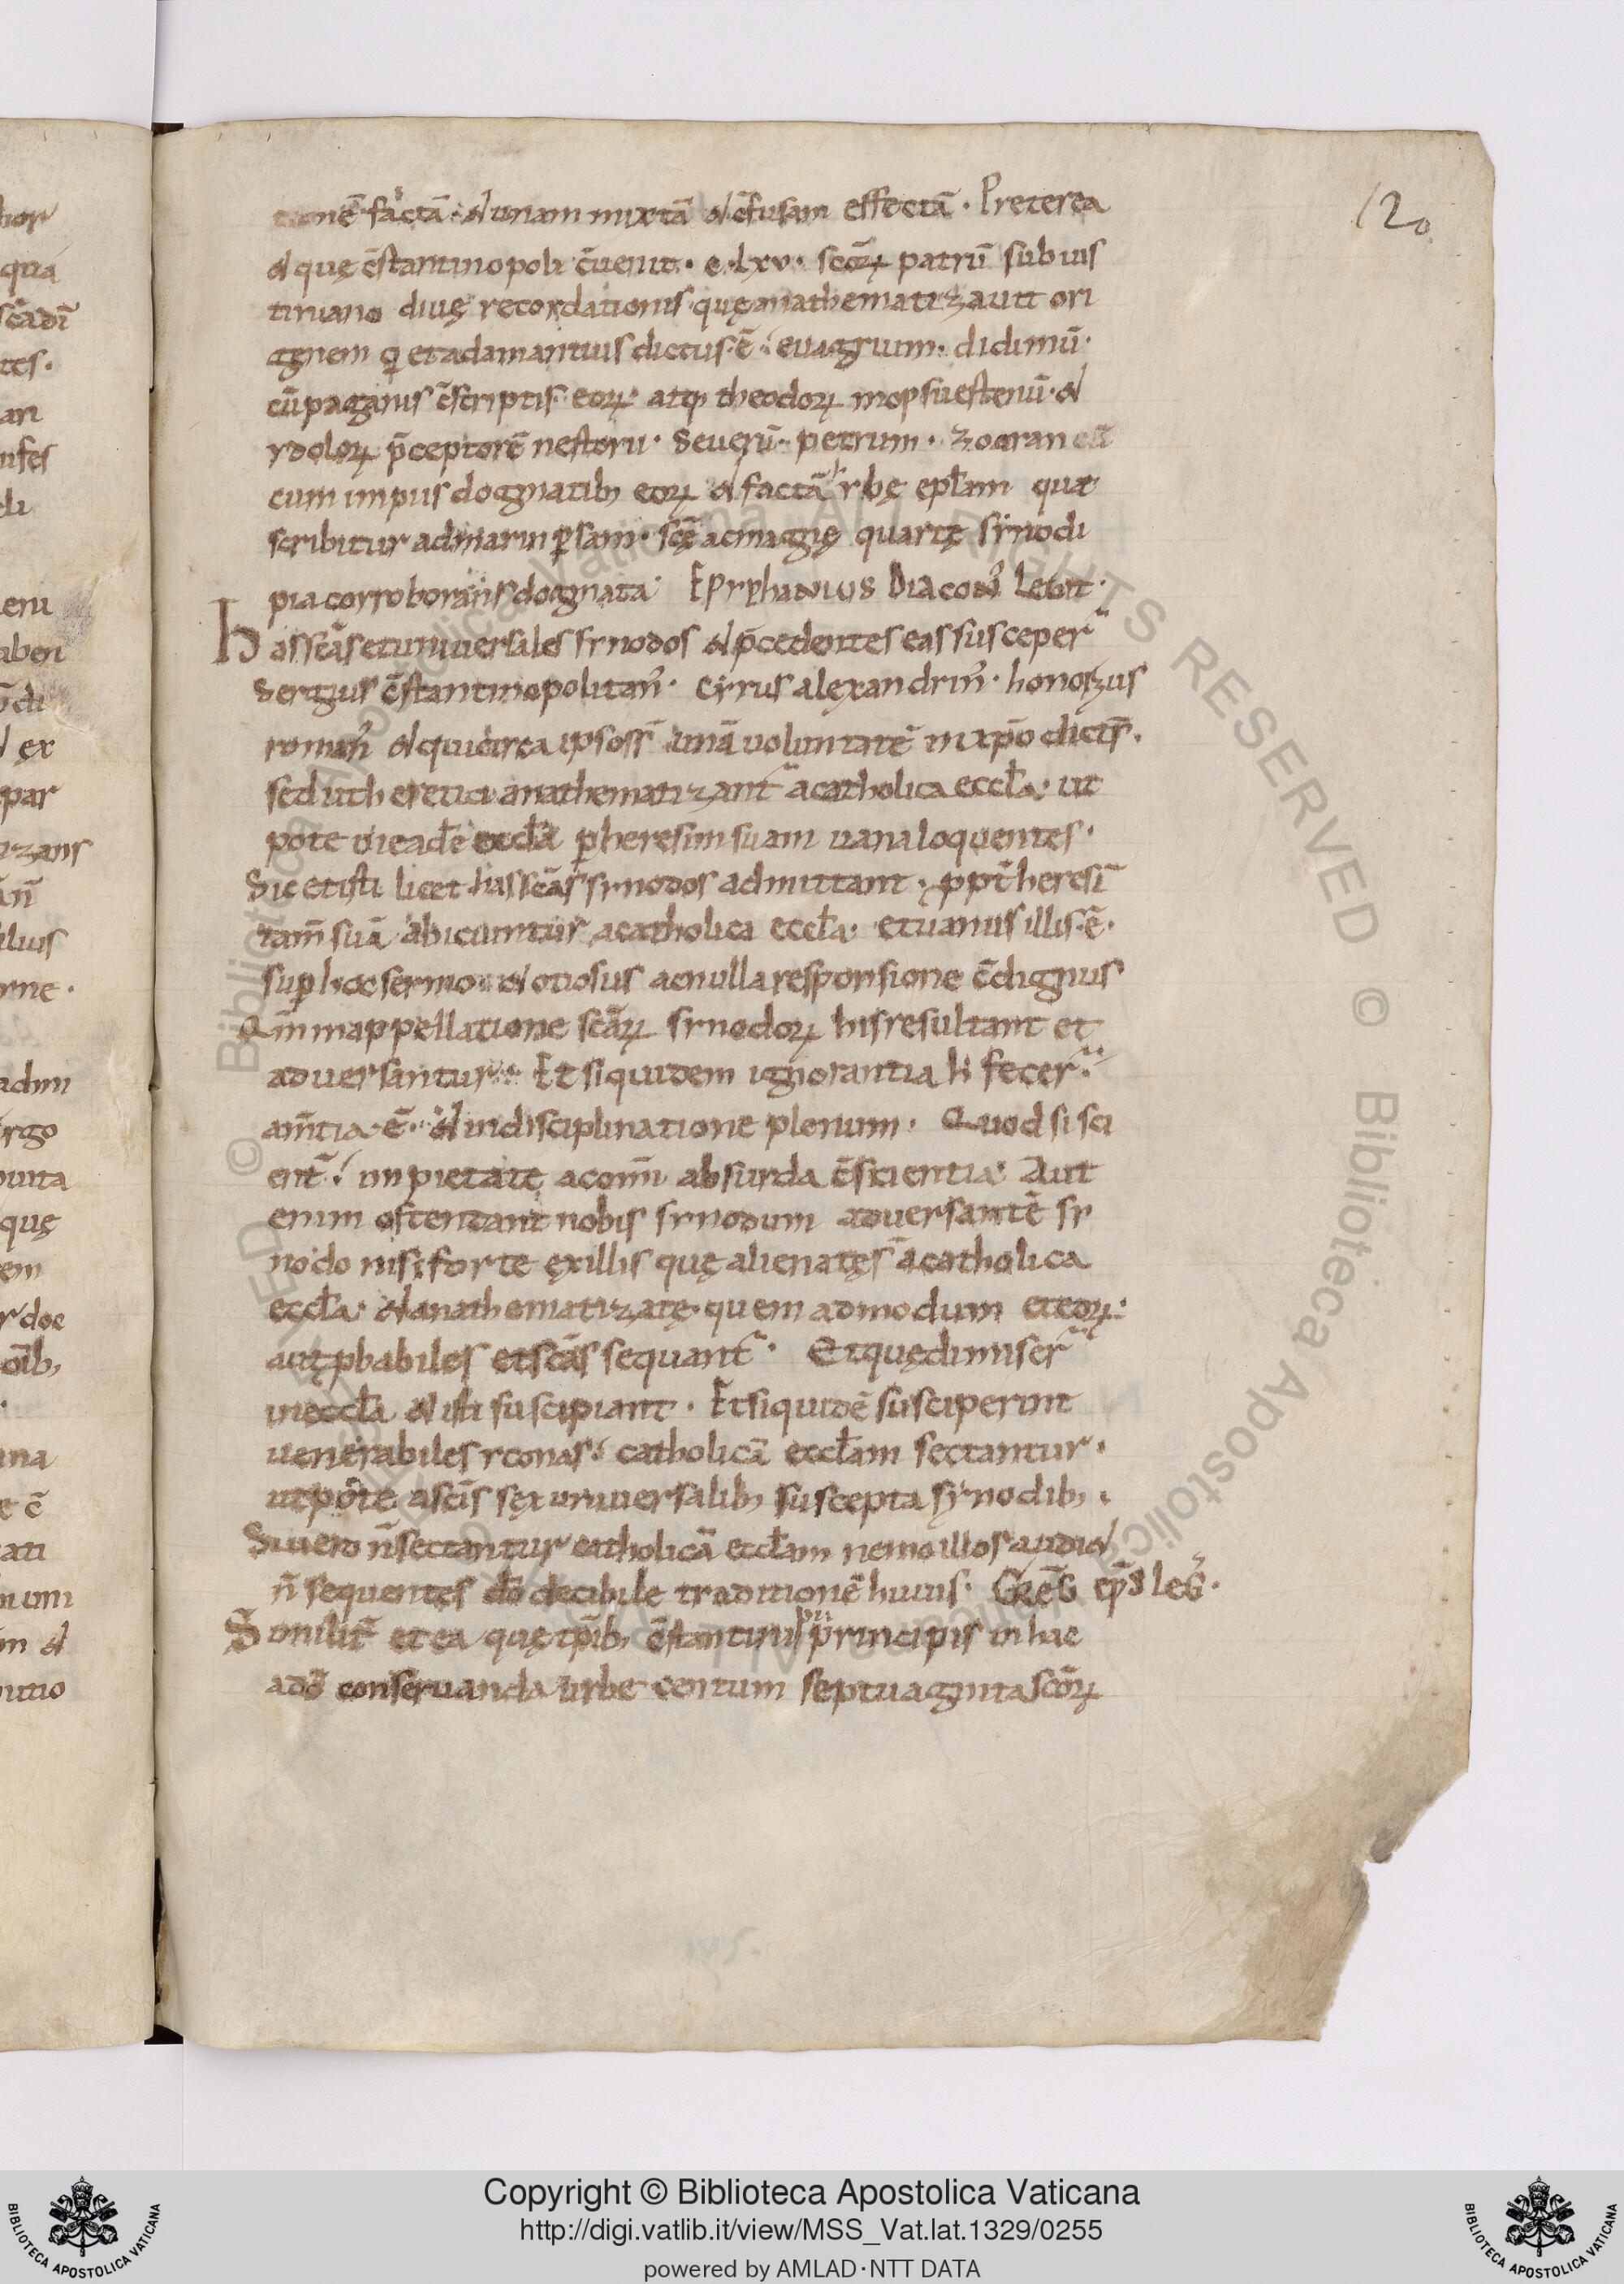 tionē factā· & unam mixtā & c̄fusam effectā· Preterea
& quę c̄stantinopoli c̄uenit· c·lxv· scōrꝝ patrū sub ius
tiniano diuę recordationis· quę anathematizauit ori
genem q et adamantius dictus·ē· euagrium· didimū·
cū paganis c̄scriptis eorꝝ· atq; theodorꝝ mopsuestenū· &
ydolorꝝ p̄ceptorē nestorii· Seuerū· petrum· zoaran
cum impiis dogmatib; eorꝝ & factā ybę epl̄am quæ
scribitur ad marin ꝑsam· scę̄ ac magnę quartę synodi
pia corroborans dogmata· EPYPhANIUS DIACON̄ Legit·
has scās et uniuersales synodos & p̄cedentes eas susceper̄
Sergius c̄stantinopolitan̄· Cyrus alexandrin̄· honorius
roman̄ & qui circa ipsos s̄ unā uoluntatē in xp̄o dicts̄·
sed ut heretici anathematizant̄ a catholica eccl̄a· ut
pote in eadē eccl̄a ꝑ heresim suam uana loquentes·
Sic et isti licet has scās synodos admittant· ꝓpt̄ heresī
tam̄ suā abiciuntur a catholica eccl̄a· et uanus illis·ē·
suꝑ hoc sermo· & otiosus ac nulla responsione c̄dignus
Qm̄ in appellatione scārꝝ synodorꝝ his resultant et
aduersantur· Et siquidem ignorantia h̄ fecer̄·
am̄tia·ē· & indisciplinatione plenum· Quod si sci
ent̄· impietate ac om̄i absurda c̄scientia· Aut
enim ostentant nobis synodum aduersantē sy
nodo nisi forte ex illis quę alienatęs̄ a catholica
eccl̄a· & anathematizatę· quemadmodum et eorꝝ·
aut ꝓbabiles et scās sequant̄· Et quę dimiser̄
in eccl̄a & isti suscipiant· Et siquidē susciperint
uenerabiles yconas· catholicā eccl̄am sectantur·
utpote a scīs sex uniuersalib; suscepta synodib;·
Si uero n̄ sectantur catholicā eccl̄am nemo illos audi&
n̄ sequentes dō decibile traditionē huius· GREḠ EPS̄ LEḠ·
Similit̄ et ea quę tp̄ib; c̄stantini pii principis in hac
a dō conseruanda urbe centum septuaginta scōrꝝ
120
Copyright © Biblioteca Apostolica Vaticana
http://digi.vatlib.it/view/MSS_Vat.lat.1329/0255
powered by AMLAD·NTT DATA
BIBLIOTECA APOSTOLICA VATICANA
BIBLIOTECA APOSTOLICA VATICANA